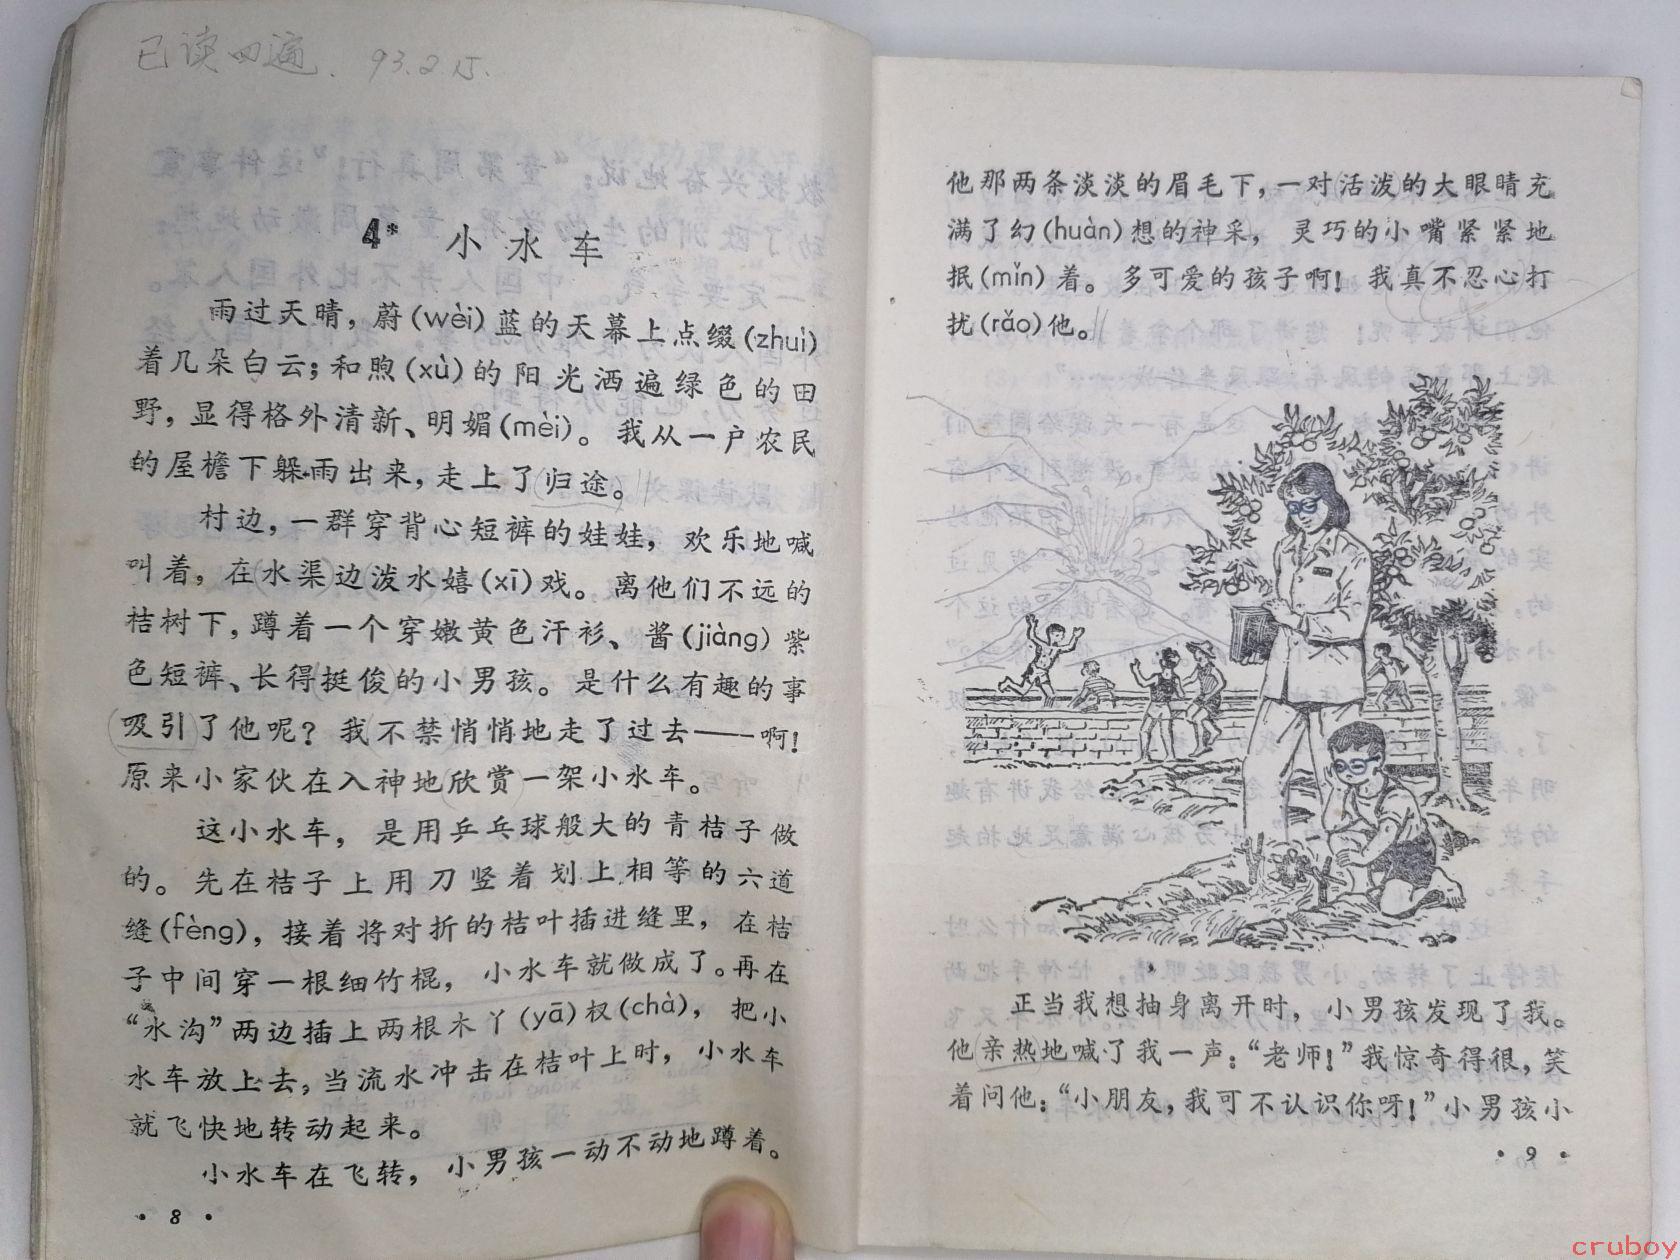 已读四遍. 93.2.15.
4* 小水车
雨过天晴，蔚(wèi)蓝的天幕上点缀(zhuì)
着几朵白云；和煦(xù)的阳光洒遍绿色的田
野，显得格外清新、明媚(mèi)。我从一户农民
的屋檐下躲雨出来，走上了归途。
村边，一群穿背心短裤的娃娃，欢乐地喊
叫着，在水渠边泼水嬉(xī)戏。离他们不远的
桔树下，蹲着一个穿嫩黄色汗衫、酱(jiàng)紫
色短裤、长得挺俊的小男孩。是什么有趣的事
吸引了他呢？我不禁悄悄地走了过去——啊！
原来小家伙在入神地欣赏一架小水车。
这小水车，是用乒乓球般大的青桔子做
的。先在桔子上用刀竖着划上相等的六道
缝(fèng)，接着将对折的桔叶插进缝里，在桔
子中间穿一根细竹棍，小水车就做成了。再在
“水沟”两边插上两根木丫(yā)杈(chà)，把小
水车放上去，当流水冲击在桔叶上时，小水车
就飞快地转动起来。
小水车在飞转，小男孩一动不动地蹲着。
· 8 ·
他那两条淡淡的眉毛下，一对活泼的大眼睛充
满了幻(huàn)想的神采，灵巧的小嘴紧紧地
抿(mǐn)着。多可爱的孩子啊！我真不忍心打
扰(rǎo)他。
正当我想抽身离开时，小男孩发现了我。
他亲热地喊了我一声：“老师！”我惊奇得很，笑
着问他：“小朋友，我可不认识你呀！”小男孩小
· 9 ·
cruboy